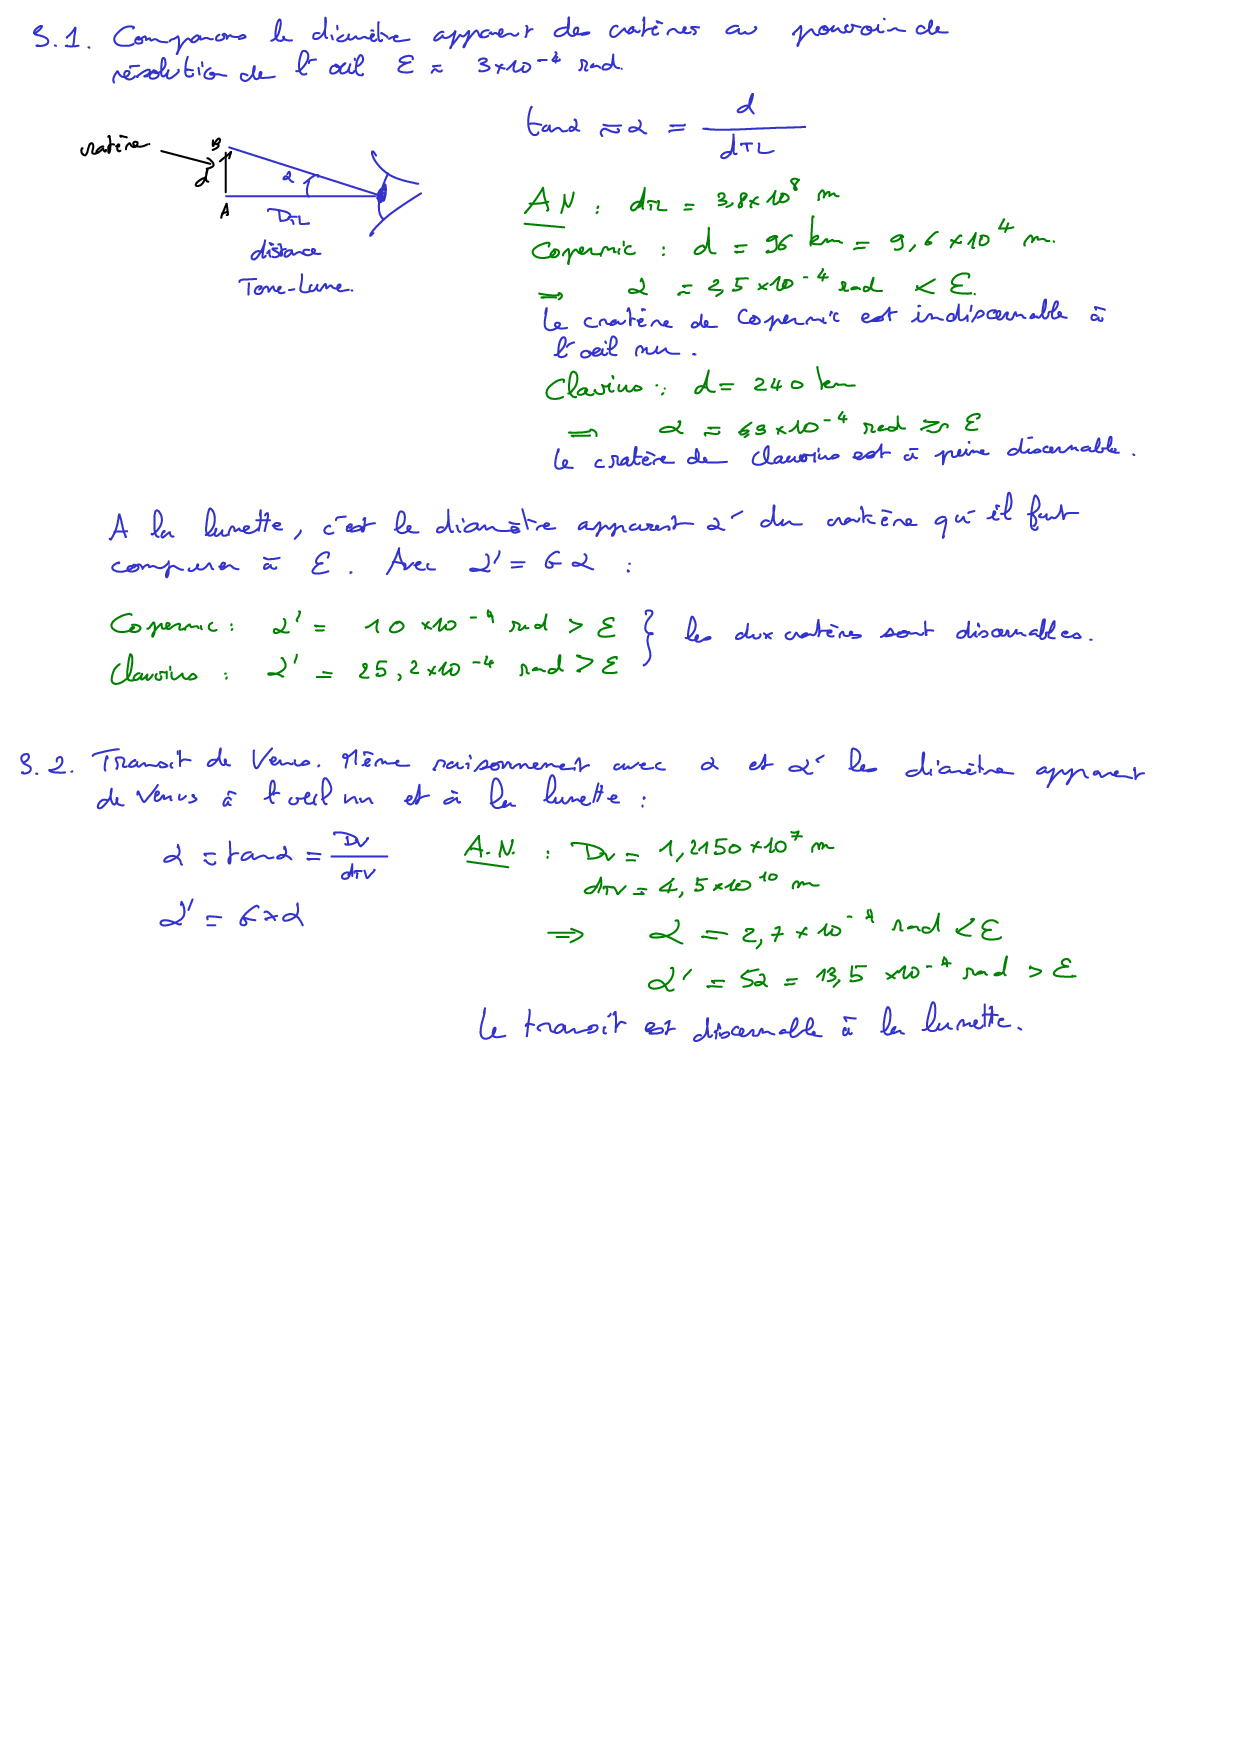 3.1. Comparons le diamètre apparent des cratères au pouvoir de
résolution de l'œil ε ≈ 3×10⁻⁴ rad.
cratère
B
d
α
A
D_TL
distance
Terre-Lune.
tan α ≈ α = d / d_TL
AN : d_TL = 3,8×10⁸ m
Copernic : d = 96 km = 9,6×10⁴ m.
⇒ α ≈ 2,5×10⁻⁴ rad < ε.
Le cratère de Copernic est indiscernable à
l'oeil nu.
Clavius : d = 240 km
⇒ α ≈ 6,3×10⁻⁴ rad ≳ ε
Le cratère de Clavoius est à peine discernable.
A la lunette, c'est le diamètre apparent α' du cratère qu'il faut
comparer à ε. Avec α' = G α :
Copernic : α' = 10×10⁻⁴ rad > ε
Clavoius : α' = 25,2×10⁻⁴ rad > ε
} les dux cratères sont discernables.
3.2. Transit de Venus. Même raisonnement avec α et α' les diamètre apparent
de Venus à l'oeil nu et à la lunette :
α ≈ tan α = D_V / d_TV
α' = G×α
A.N. : D_V = 1,2150×10⁷ m
d_TV = 4,5×10¹⁰ m
⇒ α = 2,7×10⁻⁴ rad < ε
α' = 5α = 13,5×10⁻⁴ rad > ε
Le transit est discernable à la lunette.